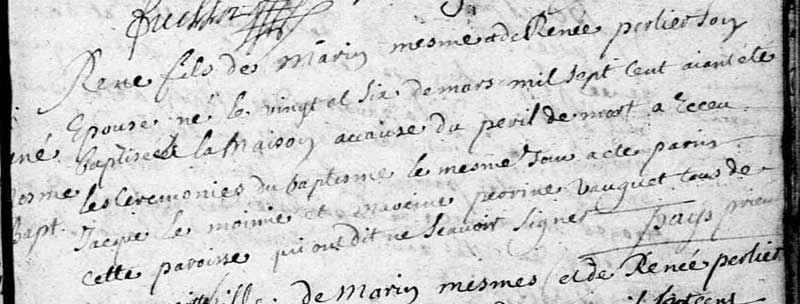 René fils de Marin mesme et de Renée perlier son
Epouse né le vingt et six de mars mil sept cent aiant été
né baptisé à la Maison accause du peril de mort a Receu
mesme les Ceremonies du baptisme le mesme Jour a été parin
Bapt. Jacque le moinne et mareine perrine vauguet tous de
cette paroisse qui ont dit ne scavoir signer prieur
fille de Marin mesmes et de Renée perlier